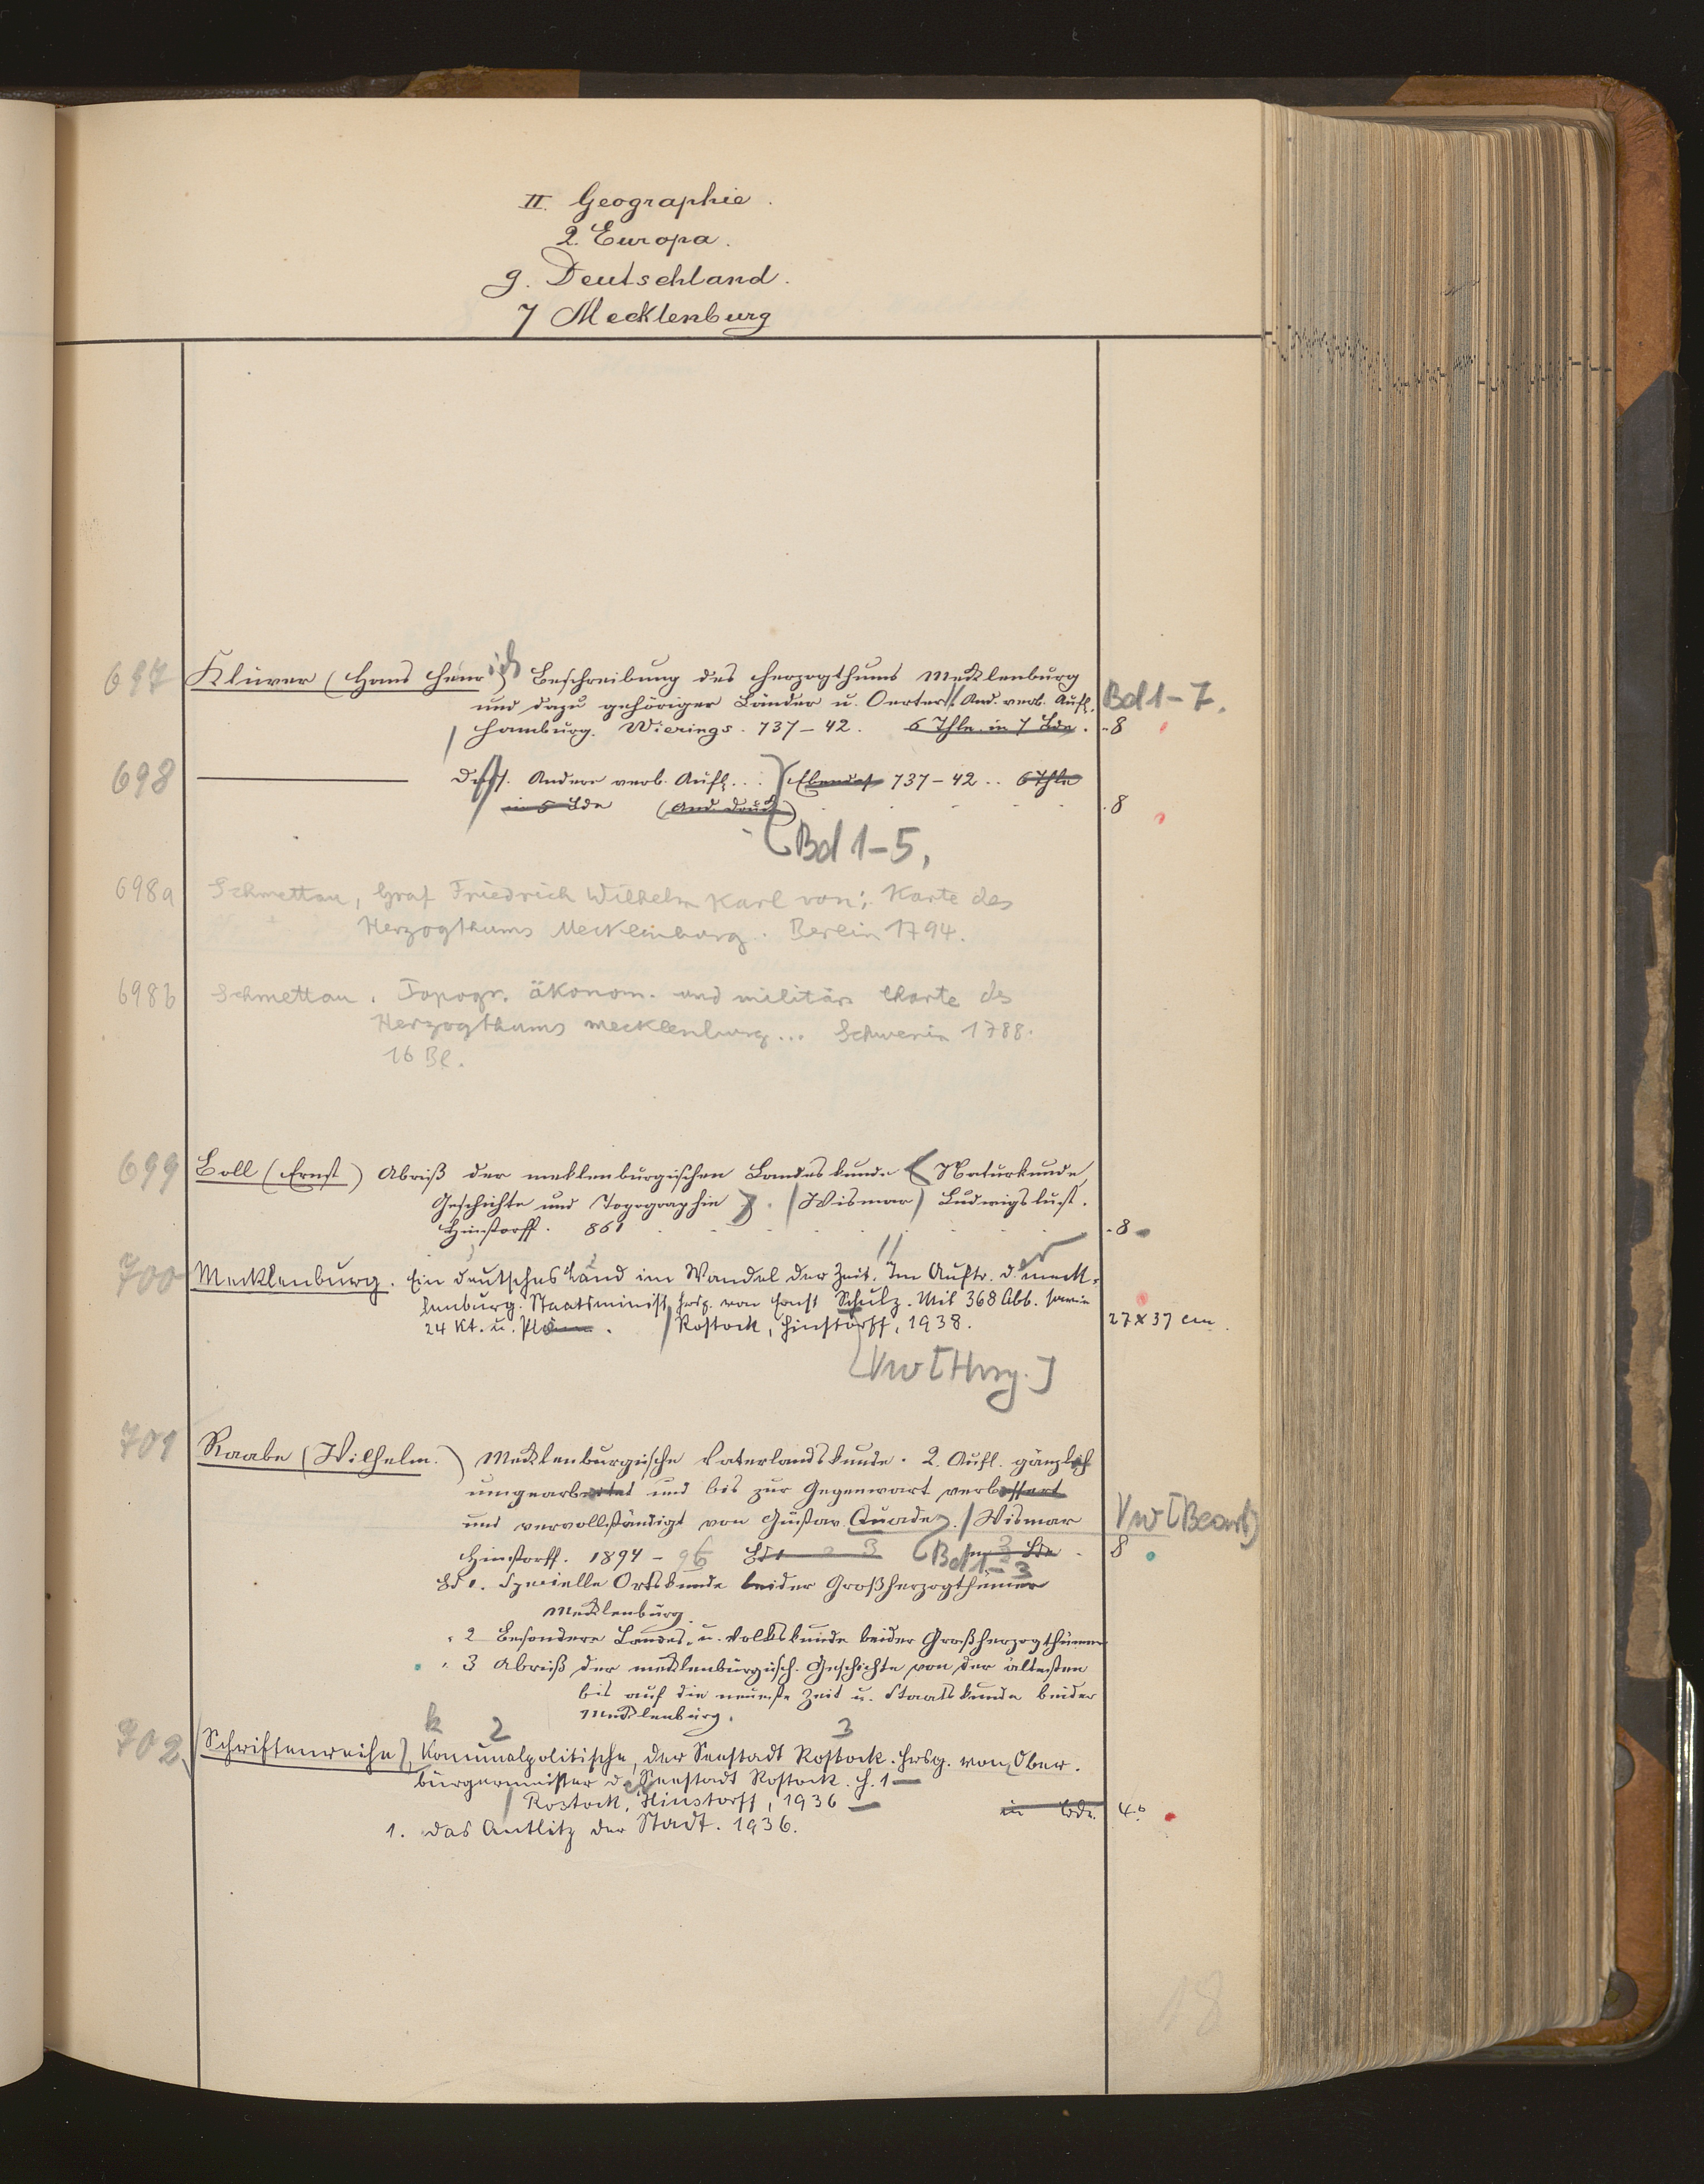 II. Geographie.
2. Europa.
g. Deutschland.
7 Mecklenburg
697 Klüver (Hans Henrich) Beschreibung des Herzogthums Mecklenburg
und dazu gehöriger Länder u. Oerter. And. verb. Aufl. Bd 1-7.
Hamburg. Wierings. 737-42. 6 Thle. in 7 Bde. 8
698 ——— Dass. Andere verb. Aufl... Ebendas. 737-42.. 6 Thle
in 5 Bde (And. Druck) 8
Bd 1-5,
698a Schmettau, Graf Friedrich Wilhelm Karl von: Karte des
Herzogthums Mecklenburg. Berlin 1794.
698b Schmettau. Topogr. ökonom. und militär. Charte des
Herzogthums Mecklenburg... Schwerin 1788.
16 Bl.
699 Boll (Ernst) Abriß der meklenburgischen Landeskunde (Naturkunde,
Geschichte und Topographie). (Wismar) Ludwigslust.
Hinstorff. 861 8
700 Mecklenburg. Ein deutsches Land im Wandel der Zeit. Im Auftr. d. meck-
lenburg. Staatsminist. hrsg. von Ernst Schulz. Mit 368 Abb. sowie
24 Kt. u. Plänen. Rostock, Hinstorff, 1938. 27x37 cm.
[Vw [Hrsg.]
701 Raabe (Wilhelm.) Mecklenburgische Vaterlandskunde. 2. Aufl. gänzlich
umgearbeitet und bis zur Gegenwart verbessert
und vervollständigt von Gustav Quade. Wismar Vw [Bearb]
Hinstorff. 1894-96 Bd 1 3 Bd 1-3 in 3 Bde 8
Bd 1. Specielle Ortskunde beider Großherzogthümer
Mecklenburg.
" 2 Besondere Landes- u. Volkskunde beider Großherzogthümer
" 3 Abriß der mecklenburgisch. Geschichte von der ältesten
bis auf die neueste Zeit u. Staatskunde beider
Mecklenburg.
k 2 3
702 Schriftenreihe, Kommunalpolitische, der Seestadt Rostock. Hrsg. von Ober-
bürgermeister der Seestadt Rostock. H. 1—
Rostock, Hinstorff, 1936 — in Bde. 4°
1. Das Antlitz der Stadt. 1936.
18